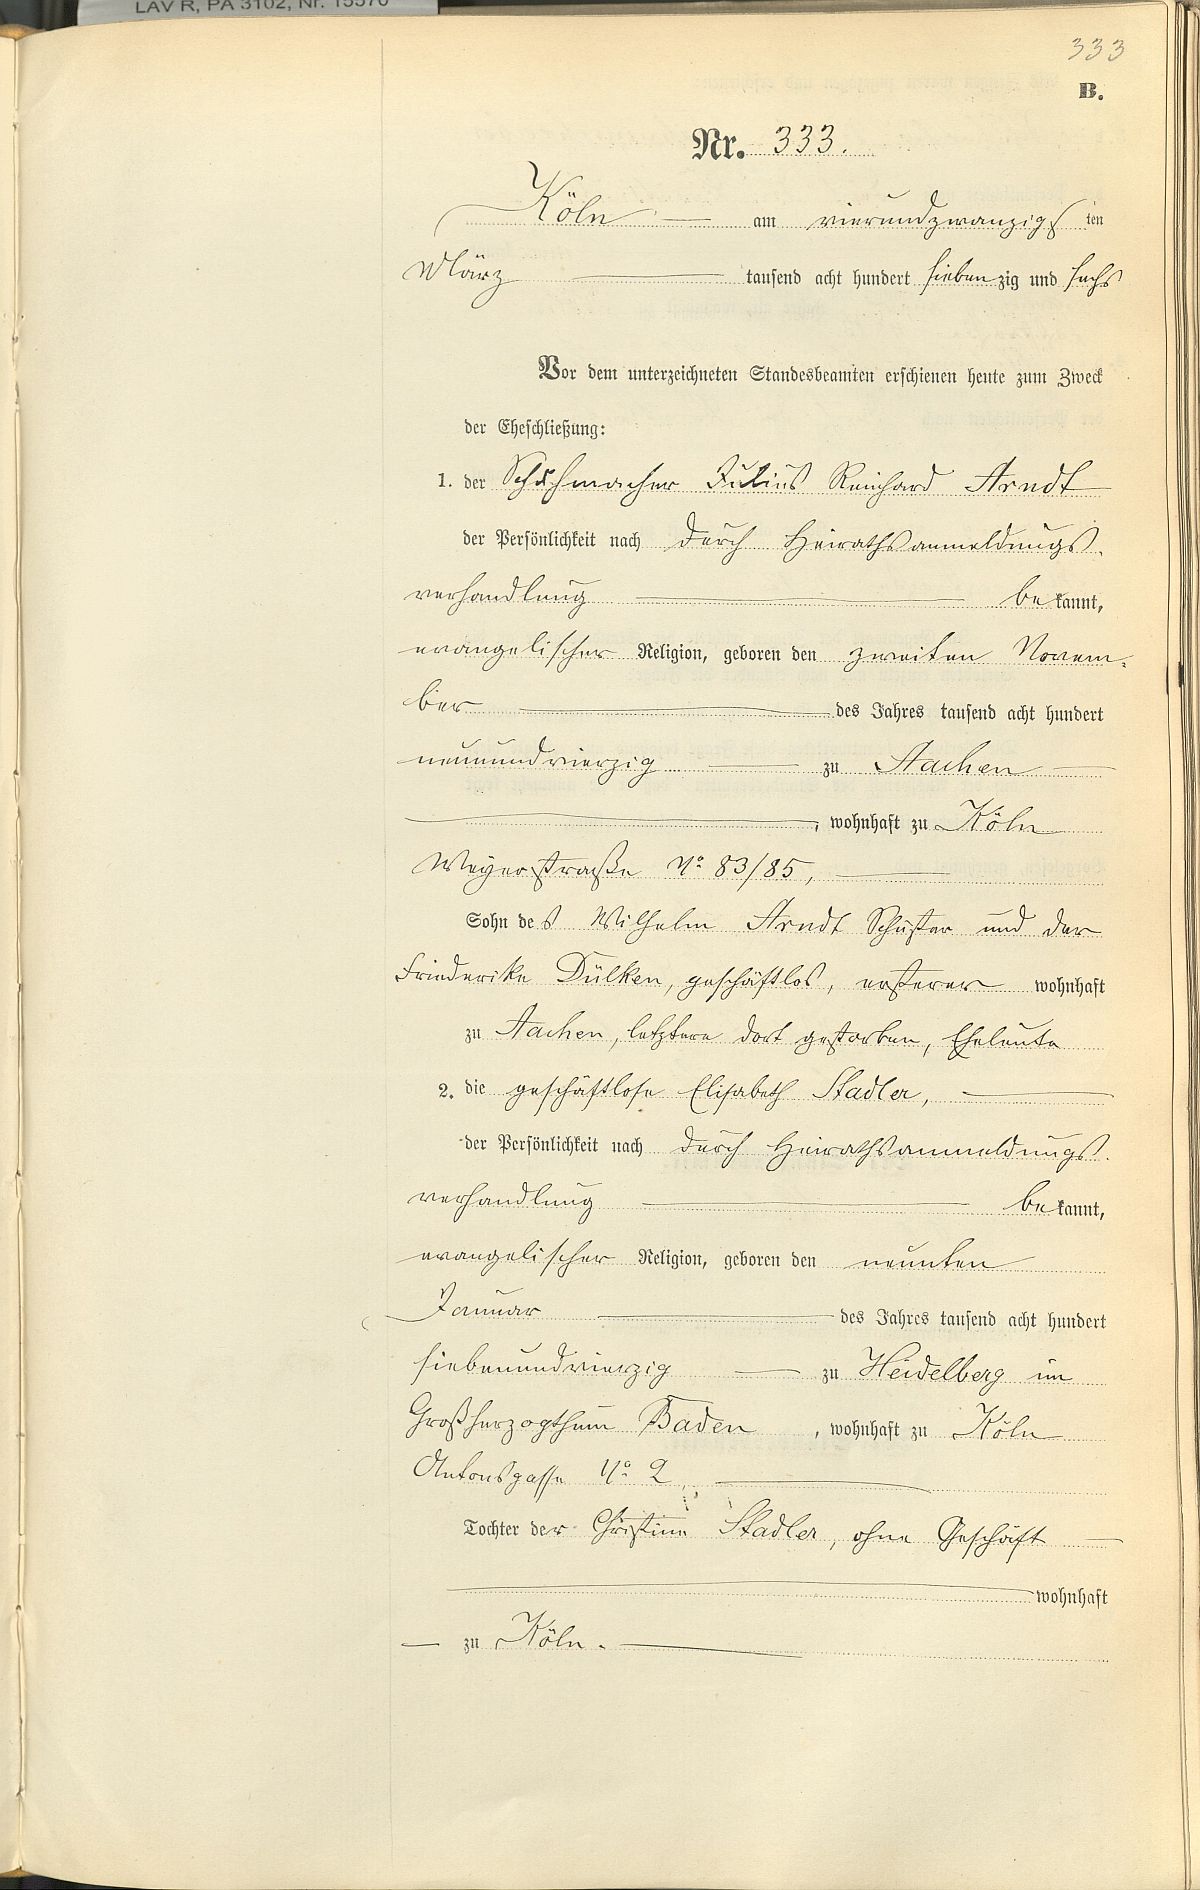 LAV R, PA 3102, Nr. 15570
333
B.
Nr. 333.
Köln am vierundzwanzigsten
März tausend acht hundert siebenzig und sechs
Vor dem unterzeichneten Standesbeamten erschienen heute zum Zweck
der Eheschließung:
1. der Schuhmacher Julius Reinhard Arndt
der Persönlichkeit nach durch Heirathsanmeldungs-
verhandlung bekannt,
evangelischer Religion, geboren den zweiten Novem-
ber des Jahres tausend acht hundert
neunundvierzig zu Aachen
, wohnhaft zu Köln
Weyerstraße No 83/85,
Sohn des Wilhelm Arndt Schuster und der
Friederike Dülken, geschäftlos, ersterer wohnhaft
zu Aachen, letztere dort gestorben, Eheleute
2. die geschäftlose Elisabeth Stadler,
der Persönlichkeit nach durch Heirathsanmeldungs-
verhandlung bekannt,
evangelischer Religion, geboren den neunten
Januar des Jahres tausend acht hundert
siebenundvierzig zu Heidelberg im
Großherzogthum Baden, wohnhaft zu Köln
Antonsgasse No 2,
Tochter der Christine Stadler, ohne Geschäft
wohnhaft
zu Köln.